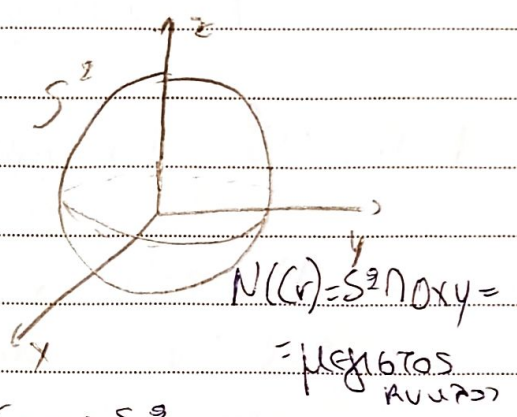 z
S²
y
N(Cr)=S²∩Oxy=
x
=μέγιστος
κύκλος